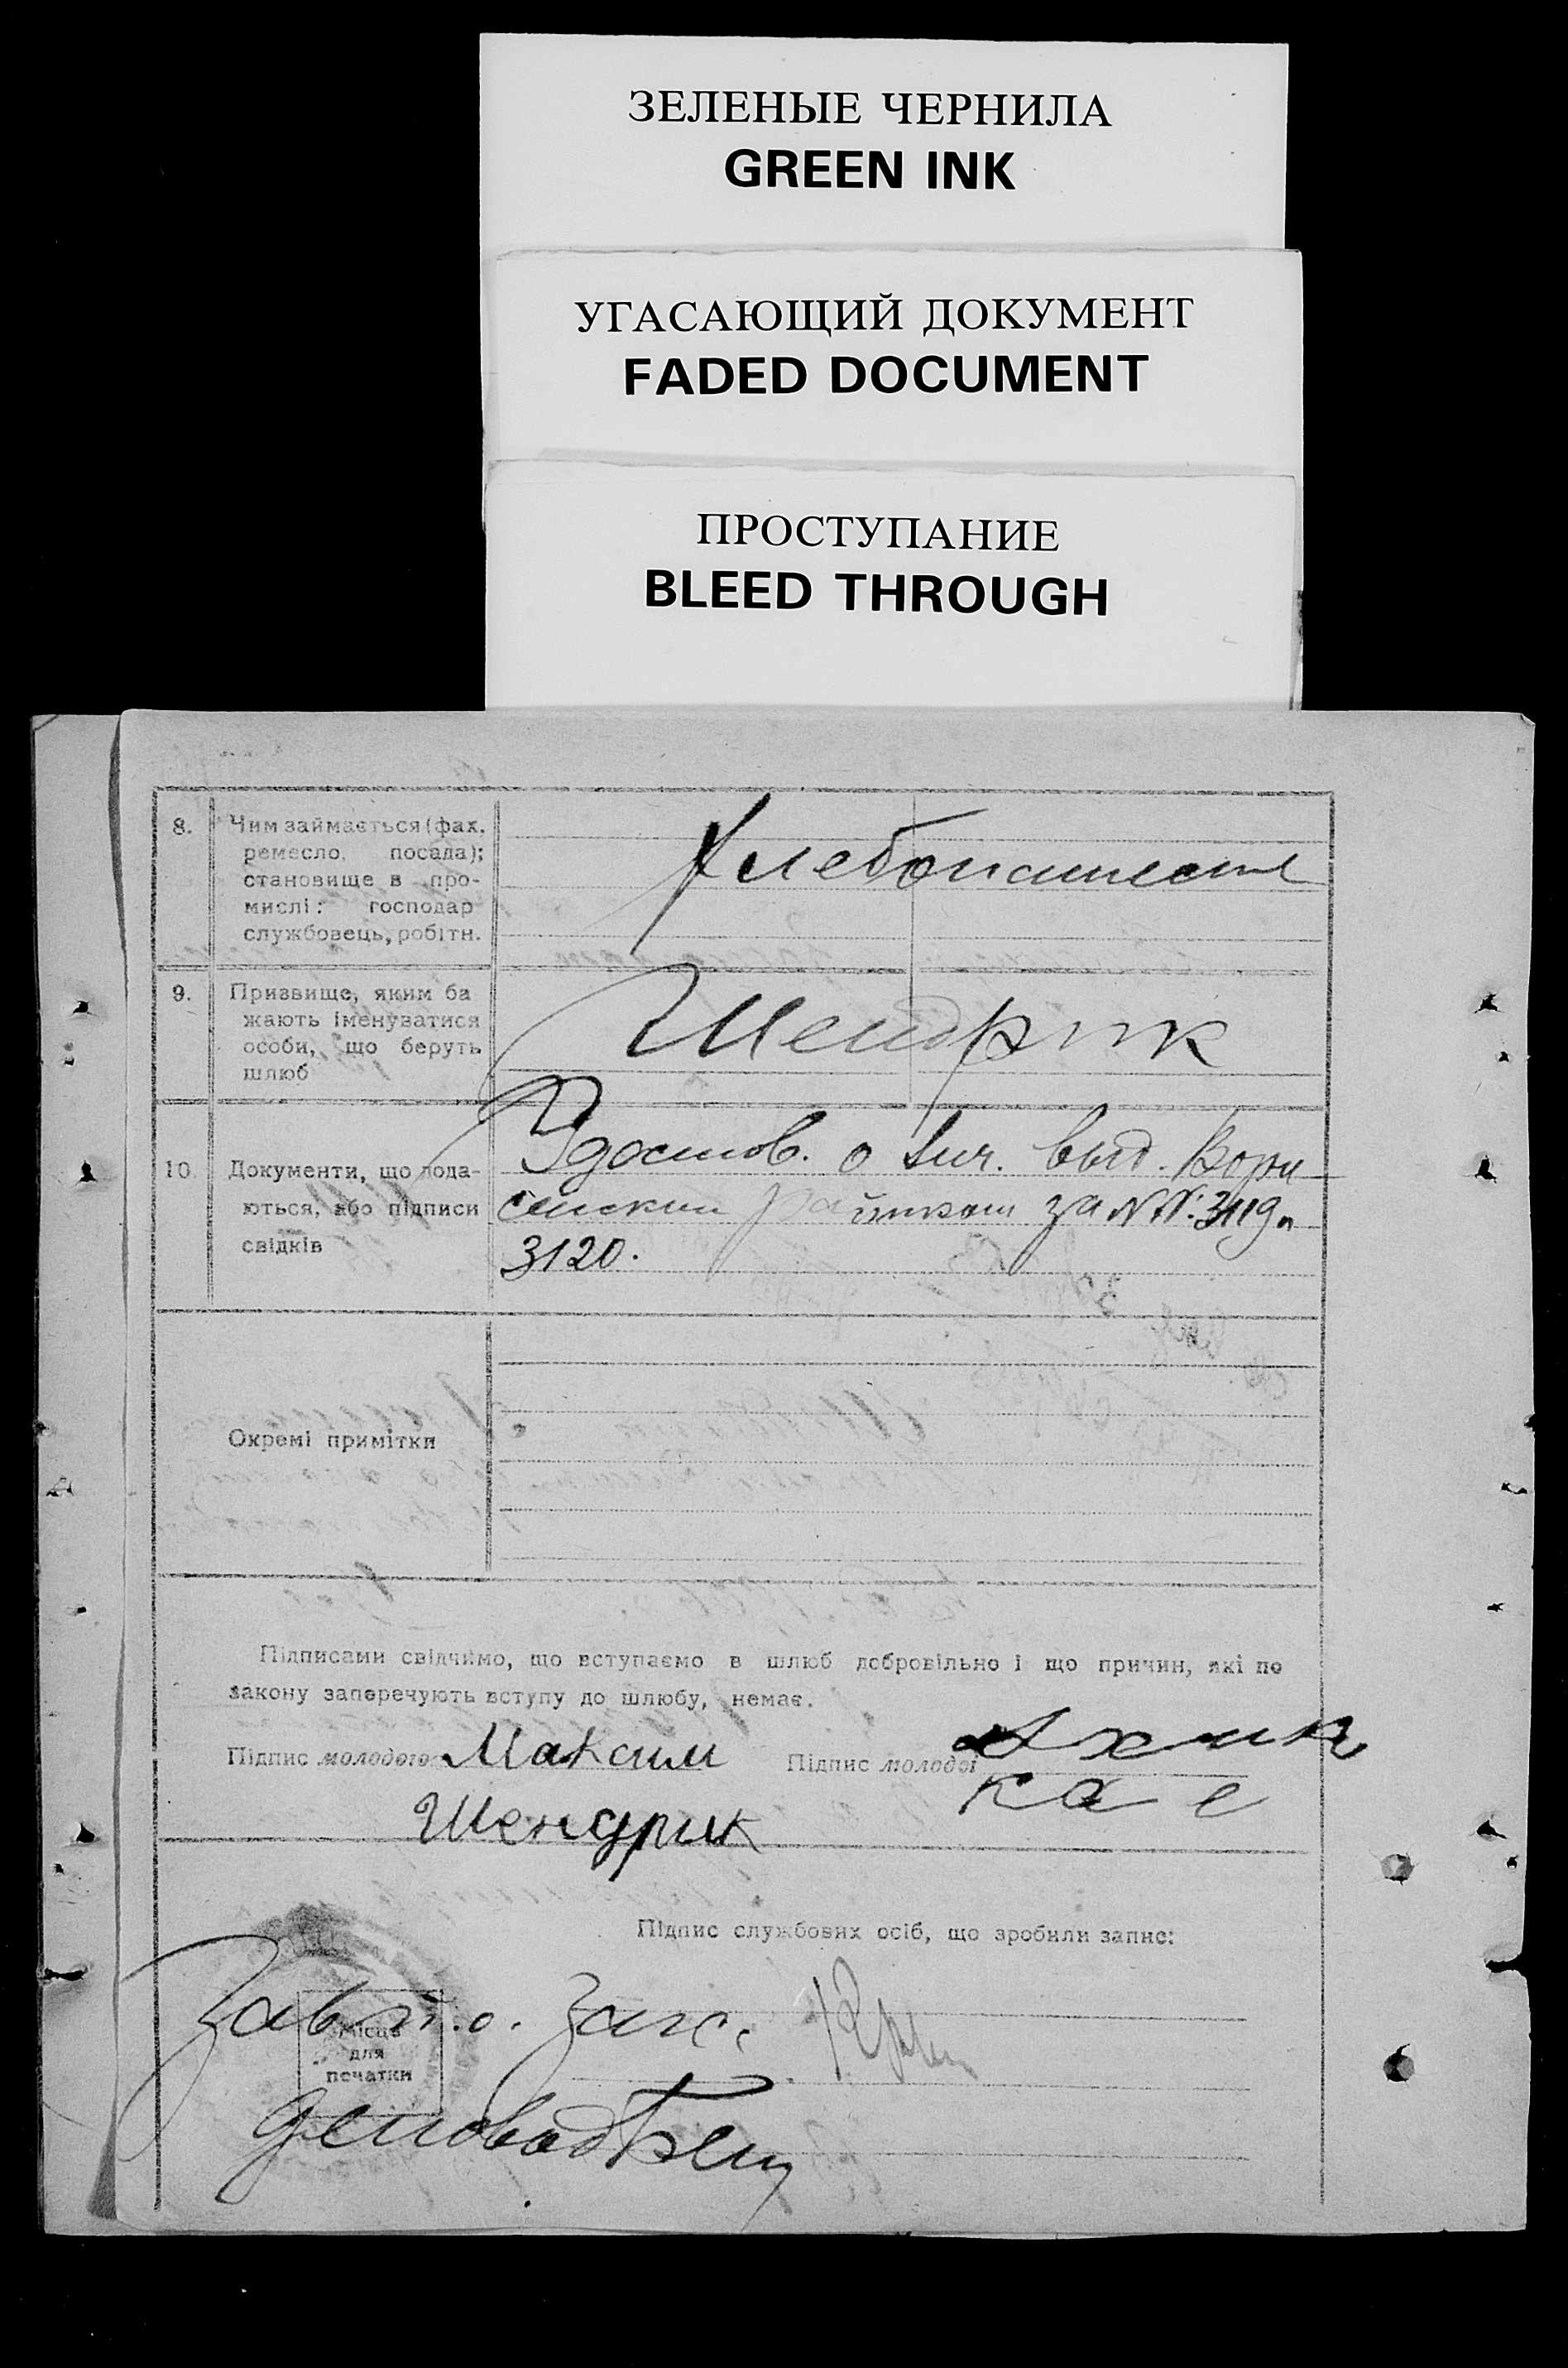 ЗЕЛЕНЫЕ ЧЕРНИЛА
GREEN INK
УГАСАЮЩИЙ ДОКУМЕНТ
FADED DOCUMENT
ПРОСТУПАНИЕ
BLEED THROUGH
8. Чим займається (фах,
ремесло, посада);
становище в про-
мислі: господар
службовець, робітн.
Хлебопашест
9. Призвище, яким ба
жають іменуватися
особи, що беруть
шлюб
Шендрик
10. Документи, що пода-
ються, або підписи
свідків
Удостов. о лич. выд.
райиком за NN: 3119 и
3120.
Окремі примітки
Підписами свідчимо, що вступаємо в шлюб добровільно і що причин, які по
закону заперечують вступу до шлюбу, немає.
Підпис молодого Максим Підпис молодої
Шендрик
Підпис службових осіб, що зробили запис:
Зав п.о. Загс
Місце
для
печатки